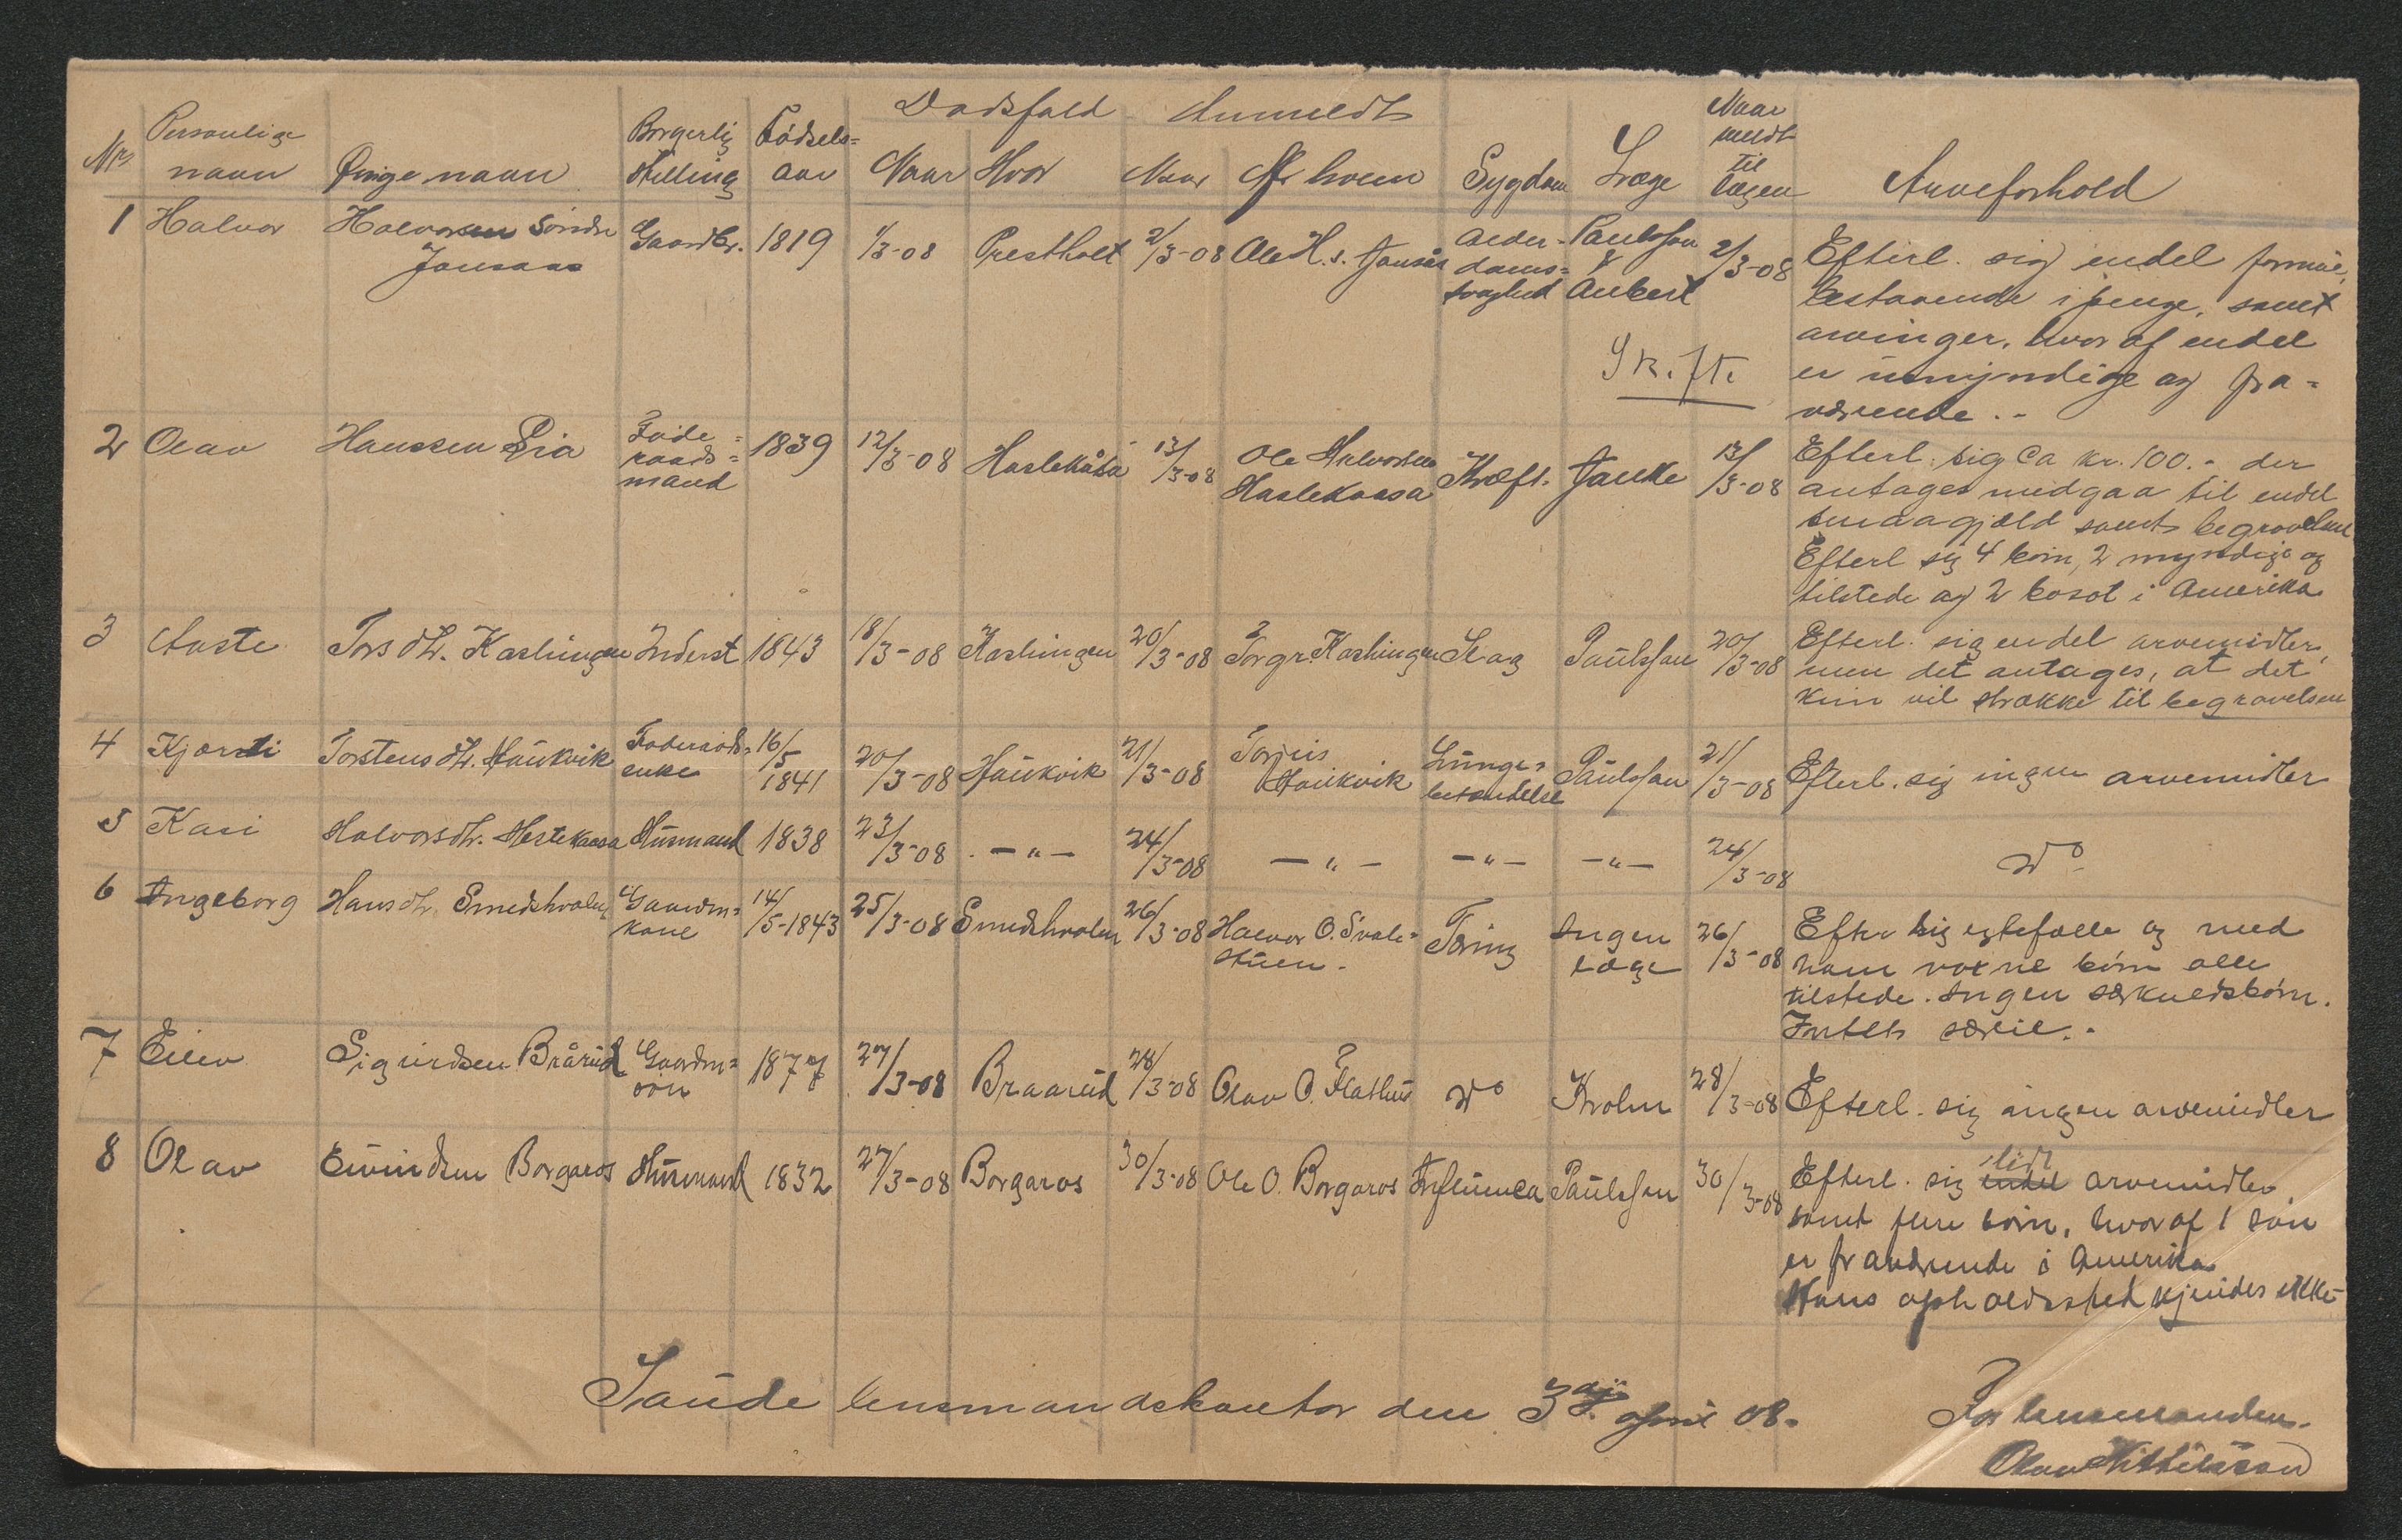 Dødsfald Anmeldt
Nr. Personlige navn Øvrige navn Borgerlig stilling Fødsels= aar Naar Hvor Naar Af hvem Sygdom Læge Naar meldt til lægen Arveforhold
1 Halvor Halvorsen Söndre Jonsaas Gaardbr. 1819 1/3-08 Prestholt 2/3-08 Ole H. s. Jonsås Alder= doms= svaghed Paulsson & Aubert 2/3-08 Efterl. sig endel formue,
bestaaende i penge, samt
arvinger, hvoraf endel
Skifte er umyndige og fra=
værende.-
2 Olav Hanssen Lia Föde= raads= mand 1839 12/3-08 Haslekåsa 13/3-08 Ole Halvorsen Haslekaasa Kræft. Janke 13/3-08 Efterl. sig ca kr. 100.- der
antages medgaa til endel
smaagjæld samt begravelsen
Efterl sig 4 börn, 2 myndige og
tilstede og 2 bosat i Amerika
3 Aaste Torsdtr. Kashingen Inderst 1843 18/3-08 Kashingen 20/3-08 Torgr. Kashingen Slag Paulsson 20/3-08 Efterl. sig endel arvemidler,
men det antages, at det
kun vil strække til begravelsen
4 Kjærsti Torstensdtr. Haukvik Föderaads= enke 16/5 1841 20/3-08 Haukvik 21/3-08 Torjus Haukvik Lunge= betændelse Paulsson 21/3-08 Efterl. sig ingen arvemidler
5 Kari Halvorsdtr. Hestekaasa Husmand 1838 23/3-08 -"- 24/3-08 -"- -"- -"- 24/3-08 Do
6 Ingeborg Hansdtr. Smedshvalen Gaardm= kone 14/5-1843 25/3-08 Smedshvalen 26/3-08 Halvor O. Svale= stuen. Tæring Ingen læge 26/3-08 Efter sig egtefælle og med
ham voxne börn alle
tilstede. Ingen særkuldsbörn.
Intet særeie.-
7 Eilev Sigurdsen Brårud Gaardm= sön 1877 27/3-08 Braarud 28/3-08 Olav O. Flathus Do Kvolm 28/3-08 Efterl. sig ingen arvemidler
8 Olav Eivindsen Borgaros Husmand 1832 27/3-08 Borgaros 30/3-08 Ole O. Borgaros Influenca Paulsson 30/3-08 Efterl. sig endel lidt arvemidler,
samt flere börn, hvoraf 1 sön
er fraværende i Amerika
Hans opholdssted kjendes ikke-
Saude lensmandskontor den 3dje april 08.
For lensmanden.
Olav Kittilsson